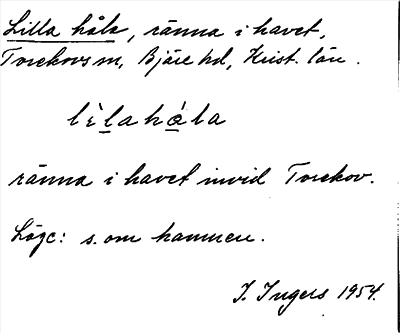 Lilla håla, ränna i havet,
Torekovs sn, Bjäre hd, Krist. län.
lìlahåla
ränna i havet invid Torekov.
Läge: s. om hamnen.
I. Ingers 1954.